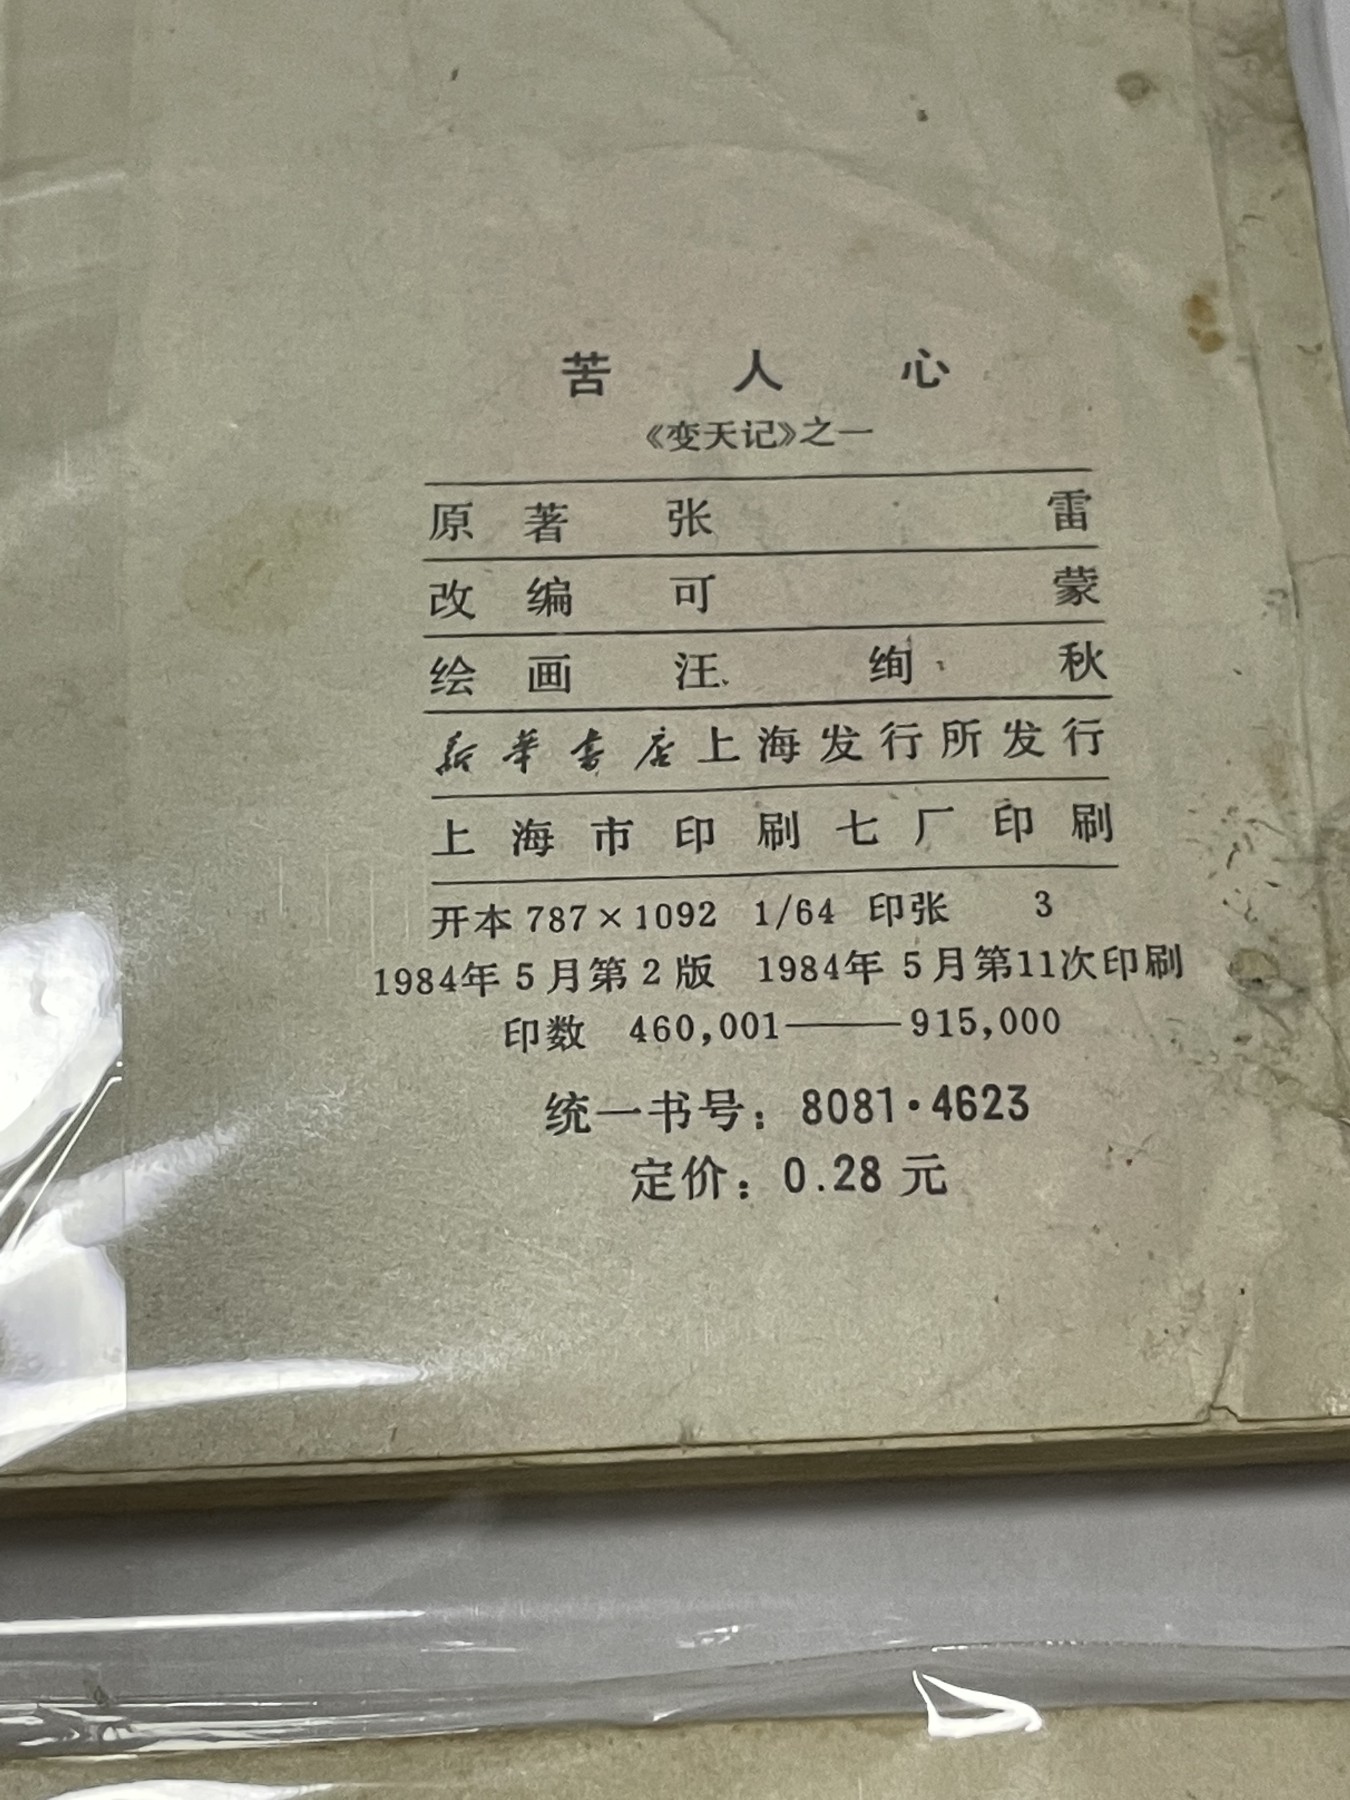 苦人心
《变天记》之一
原著 张雷
改编 可蒙
绘画 汪绚秋
新华书店上海发行所发行
上海市印刷七厂印刷
开本 787×1092 1/64 印张 3
1984年5月第2版 1984年5月第11次印刷
印数 460,001——915,000
统一书号：8081·4623
定价：0.28元